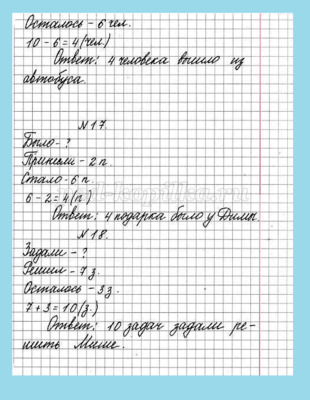 Осталось – 6 чел.
10 – 6 = 4 (чел.)
Ответ: 4 человека вышло из
автобуса.
№ 17.
Было - ?
Принесли – 2 п.
Стало – 6 п.
6 – 2 = 4 (п.)
Ответ: 4 подарка было у Димы.
№ 18.
Задали - ?
Решил – 7 з.
Осталось – 3 з.
7 + 3 = 10 (з.)
Ответ: 10 задач задали ре-
шить Мише.